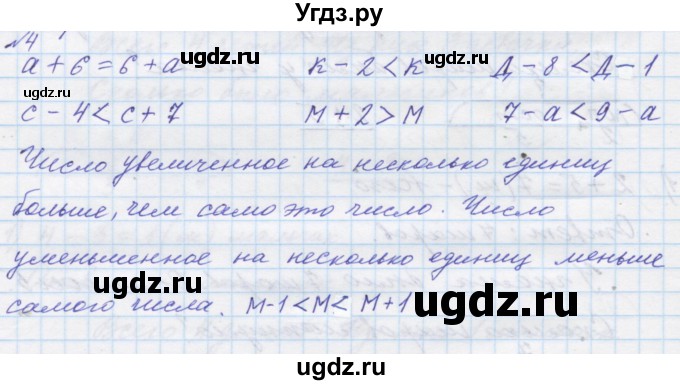 Угдз.ру
№4
а + б = б + а    к - 2 < к    Д - 8 < Д - 1
с - 4 < с + 7    м + 2 > м    7 - а < 9 - а
Число увеличенное на несколько единиц
больше, чем само это число. Число
уменьшенное на несколько единиц меньше
самого числа. м-1 < м < м+1
ugdz.ru ugdz.ru ugdz.ru
ugdz.ru ugdz.ru ugdz.ru
ugdz.ru ugdz.ru
ugdz.ru ugdz.ru
ugdz.ru